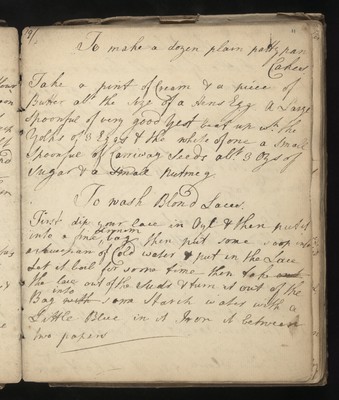 191
To make a dozen plain pattypan
Cakes
Take a pint of Cream & a piece of
Butter abt the size of a Hens Egg a Large
Spoonful of very good Yest beat up wt. the
Yolks of 3 Eggs & the white of one a Small
Spoonful of Carriway Seeds abt. 3 Ozs of
Sugar & a Small Nutmeg
To wash Blond Laces.
First dip your lace in Oyl & then put it
into a fine bag then put some soap into
a Saucepan of Cold water & put in the Lace
Let it boil for some time then take
the lace out of the Suds & turn it out of the
Bag into some Starch water with a
Little Blue in it Iron it between
two papers